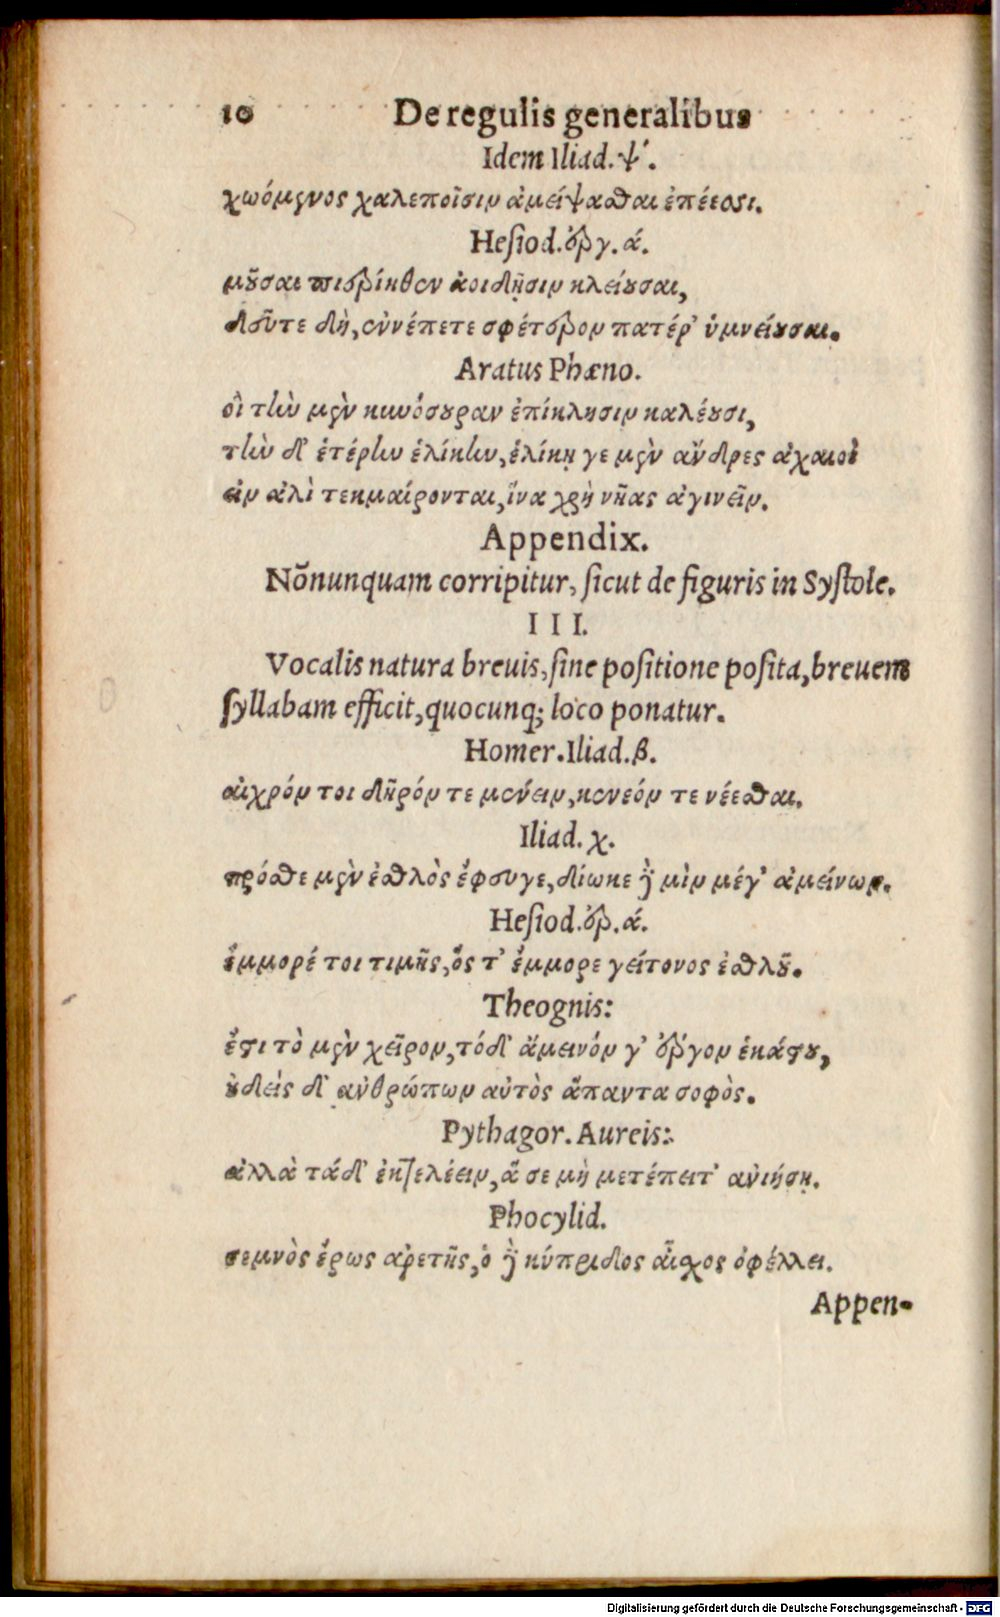 10 De regulis generalibus
Idem Iliad. ψ´.
χωόμενος χαλεποῖσιν ἀμείψασθαι ἐπέεσσι.
Hesiod. ἔργ. ά.
μοῦσαι πιερίηθεν ἀοιδῇσιν κλείουσαι,
δεῦτε δὴ, ἐννέπετε σφέτερον πατέρ' ὑμνείουσαι.
Aratus Phæno.
οἱ τὴν μὲν κυνόσουραν ἐπίκλησιν καλέουσι,
τὴν δ' ἑτέρην ἑλίκην, ἑλίκῃ γε μὲν ἄνδρες ἀχαιοὶ
εἰν ἁλὶ τεκμαίρονται, ἵνα χρὴ νῆας ἀγινεῖν.
Appendix.
Nōnunquam corripitur, sicut de figuris in Systole.
III.
Vocalis natura breuis, sine positione posita, breuem
syllabam efficit, quocunq; loco ponatur.
Homer. Iliad. β.
αἰχρόν τοι δηρόν τε μένειν, κενεόν τε νέεσθαι.
Iliad. χ.
πρόσθε μὲν ἐσθλὸς ἔφευγε, δίωκε δὲ μὶν μέγ' ἀμείνων.
Hesiod. ἔρ. ά.
ἔμμορέ τοι τιμῆς, ὅς τ' ἔμμορε γείτονος ἐσθλοῦ.
Theognis:
ἔστι τὸ μὲν χεῖρον, τόδ' ἄμεινόν γ' ἔργον ἑκάστου,
οὐδεὶς δ' ἀνθρώπων αὐτὸς ἅπαντα σοφὸς.
Pythagor. Aureis:
ἀλλὰ τάδ' ἐκτελέειν, ἅ σε μὴ μετέπειτ' ἀνιήσῃ.
Phocylid.
σεμνὸς ἔρως ἀρετῆς, ὁ δὲ κύπριδος αἶσχος ὀφέλλει.
Appen-
Digitalisierung gefördert durch die Deutsche Forschungsgemeinschaft - DFG